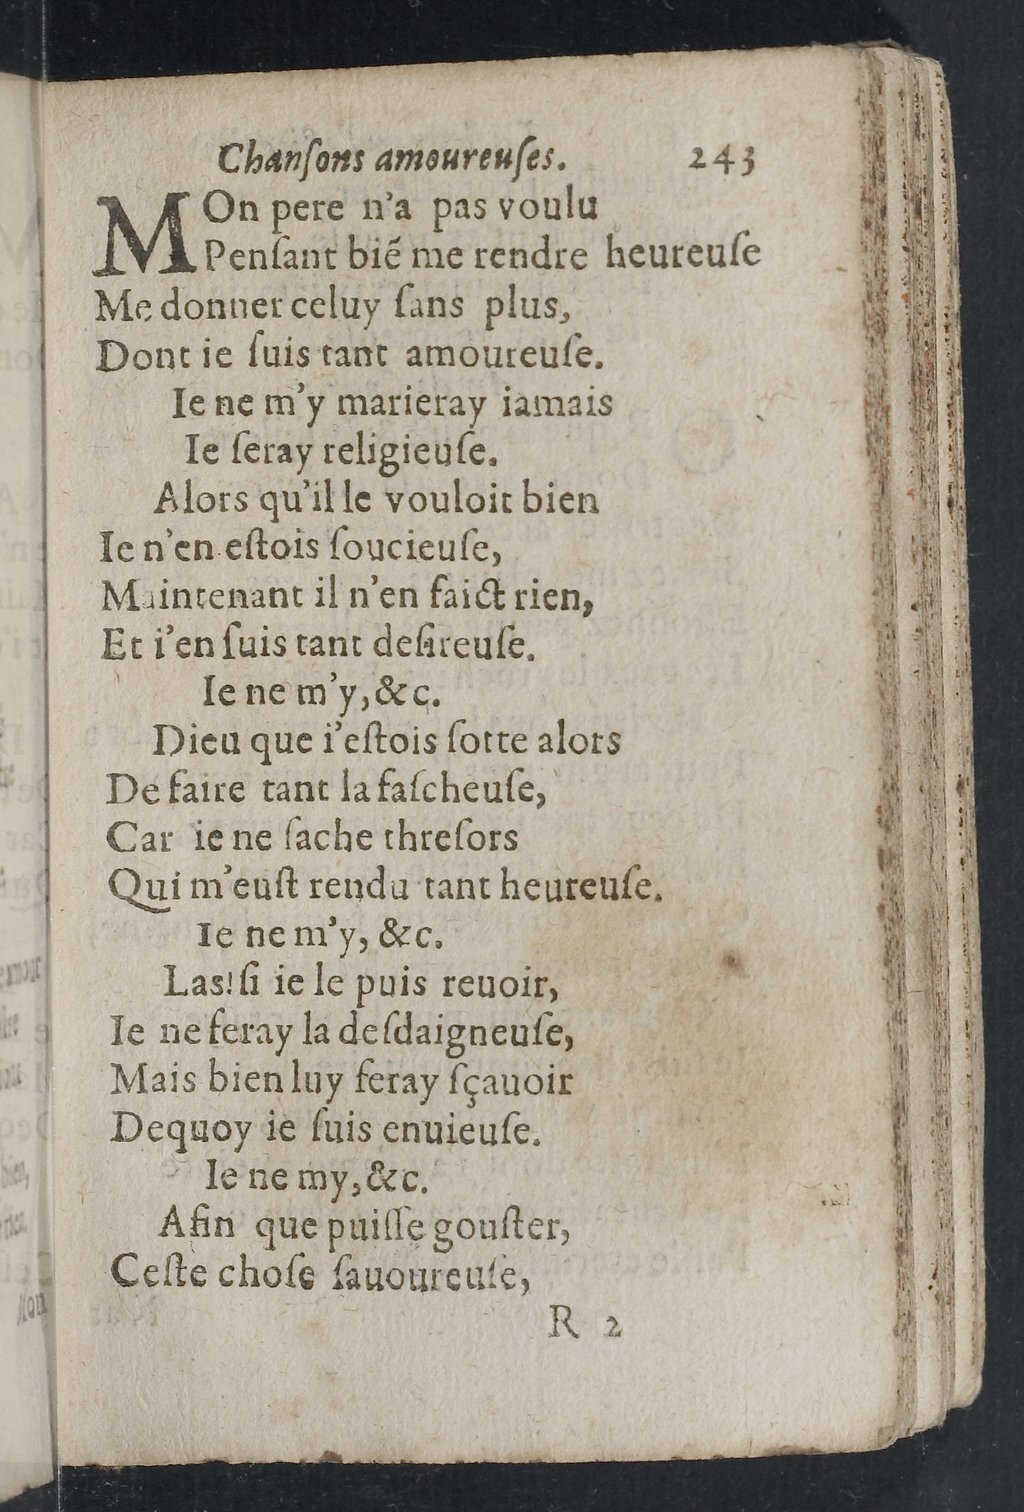 Chanſons amoureuſes. 243
MOn pere n'a pas voulu
Penſant biẽ me rendre heureuſe
Me donner celuy ſans plus,
Dont ie ſuis tant amoureuſe.
Ie ne m'y marieray iamais
Ie ſeray religieuſe.
Alors qu'il le vouloit bien
Ie n'en eſtois ſoucieuſe,
Maintenant il n'en faict rien,
Et i'en ſuis tant deſireuſe.
Ie ne m'y, &c.
Dieu que i'eſtois ſotte alors
De faire tant la faſcheuſe,
Car ie ne ſache threſors
Qui m'euſt rendu tant heureuſe.
Ie ne m'y, &c.
Las! ſi ie le puis reuoir,
Ie ne feray la deſdaigneuſe,
Mais bien luy feray ſçauoir
Dequoy ie ſuis enuieuſe.
Ie ne my, &c.
Afin que puiſſe gouſter,
Ceſte choſe ſauoureuſe,
R 2